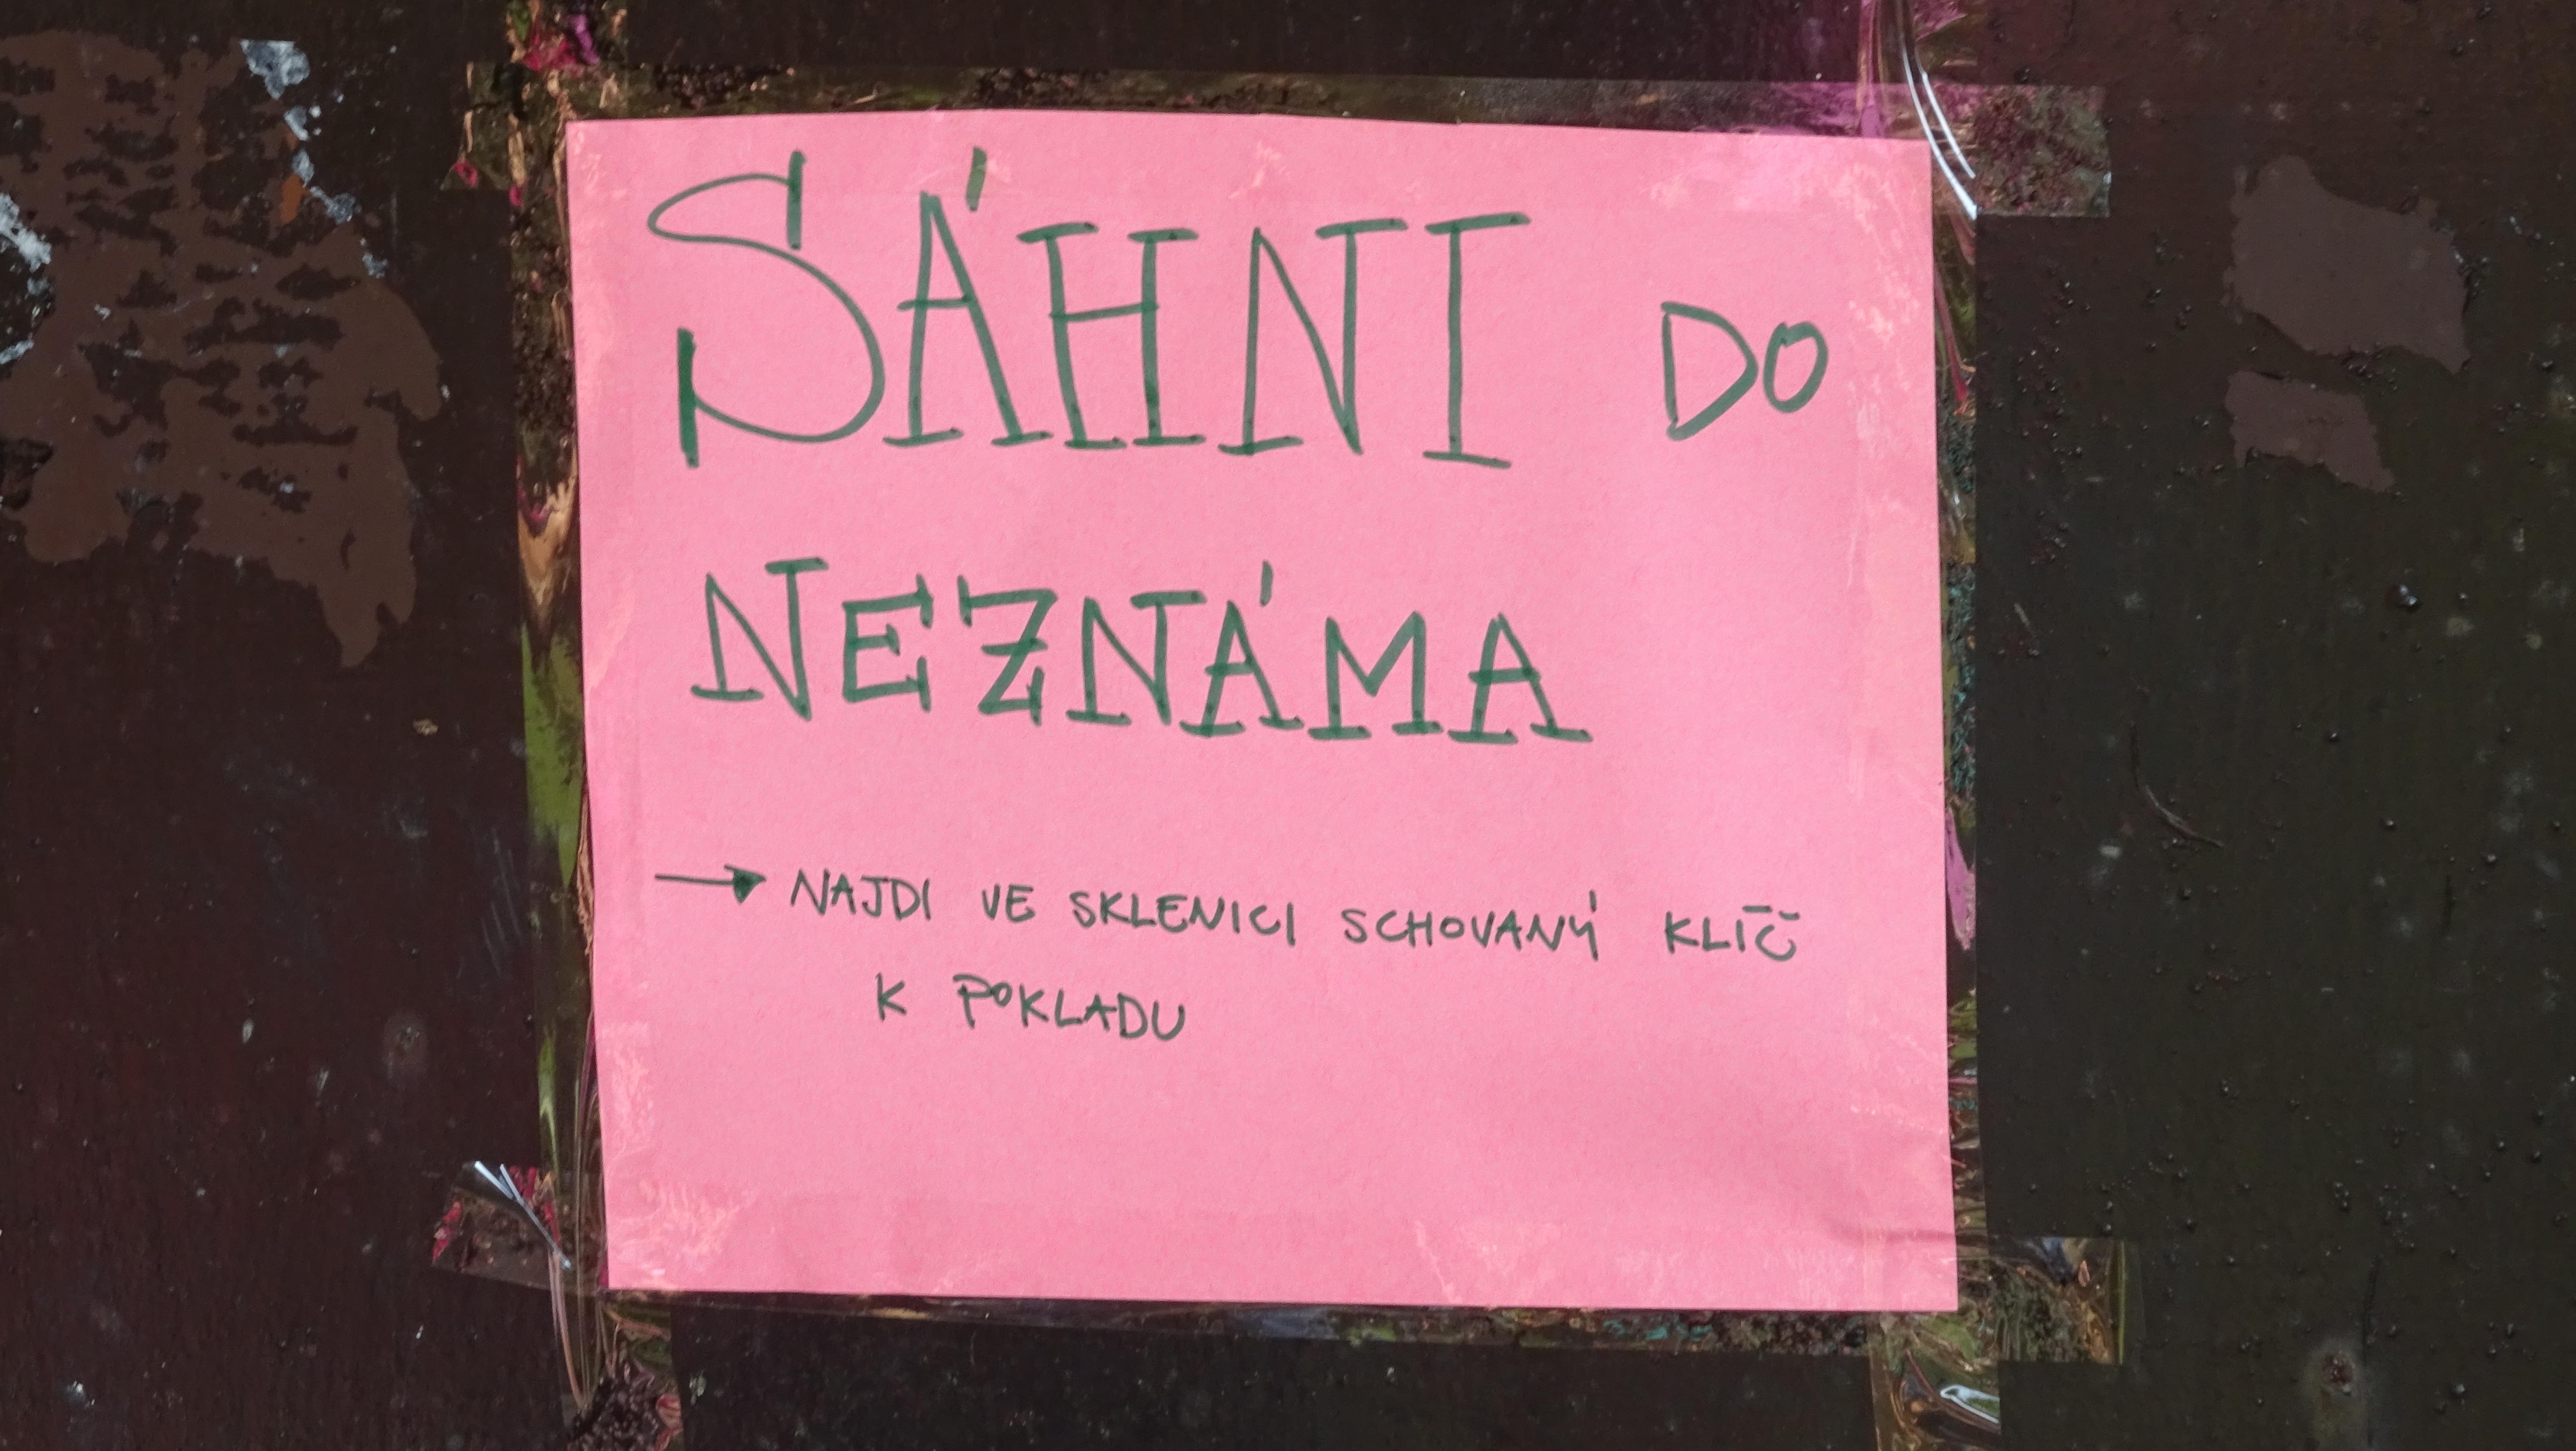 SÁHNI DO
NEZNÁMA
→ NAJDI VE SKLENICI SCHOVANÝ KLÍČ
K POKLADU